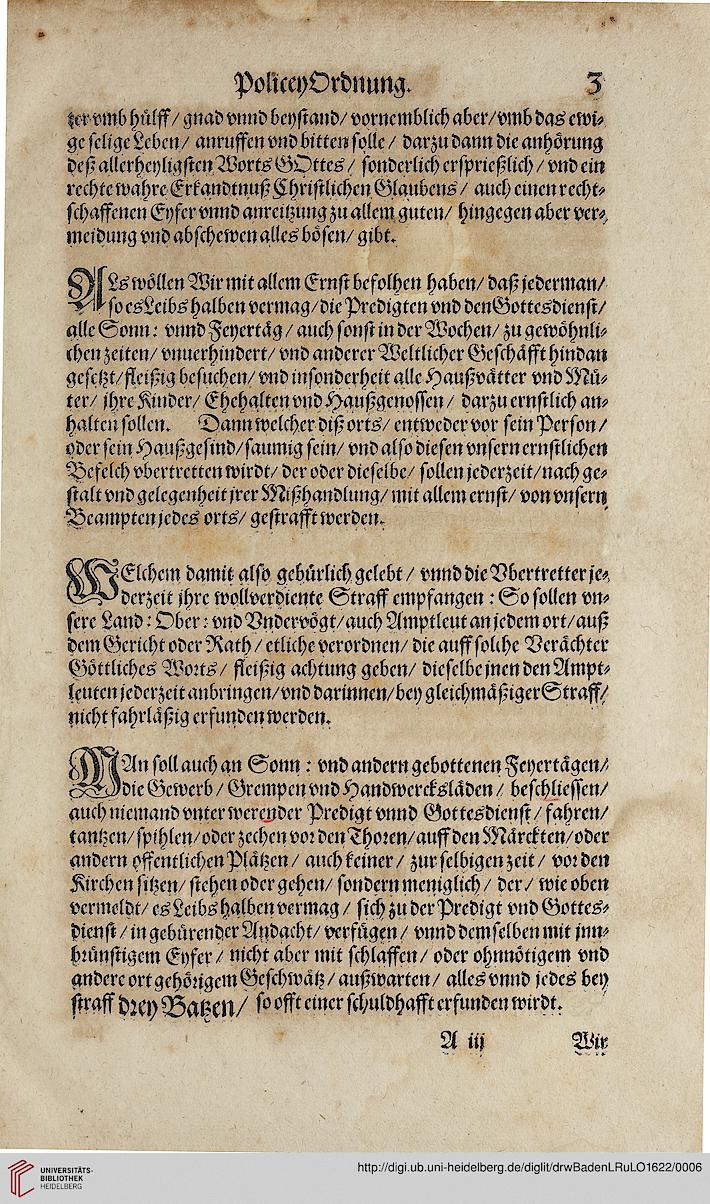 PoliceyOrdnung. 3
ter vmb hülff/ gnad vnnd beystand/ vornemblich aber/ vmb das ewi-
ge selige Leben/ anruffen vnd bitten solle/ darzu dann die anhörung
deß allerheyligsten Worts GOttes/ sonderlich ersprießlich/ vnd ein
rechte wahre Erkandtnuß Christlichen Glaubens/ auch einen recht-
schaffenen Eyfer vnnd anreitzung zu allem guten/ hingegen aber ver-
meidung vnd abschewen alles bösen/ gibt.
ALs wöllen Wir mit allem Ernst befolhen haben/ daß jederman/
so es Leibs halben vermag/ die Predigten vnd den Gottesdienst/
alle Sonn: vnnd Feyertäg/ auch sonst in der Wochen/ zu gewöhnli-
chen zeiten/ vnuerhindert/ vnd anderer Weltlicher Geschäfft hindan
gesetzt/ fleißig besuchen/ vnd insonderheit alle Haußvätter vnd Mü-
ter/ jhre Kinder/ Ehehalten vnd Haußgenossen/ darzu ernstlich an-
halten sollen. Dann welcher diß orts/ entweder vor sein Person/
oder sein Haußgesind/ saumig sein/ vnd also diesen vnsern ernstlichen
Befelch vbertretten wirdt/ der oder dieselbe/ sollen jederzeit/ nach ge-
stalt vnd gelegenheit jrer Mißhandlung/ mit allem ernst/ von vnsern
Beampten jedes orts/ gestrafft werden.
WElchem damit also gebürlich gelebt/ vnnd die Vbertretter je-
derzeit jhre wollverdiente Straff empfangen: So sollen vn-
sere Land: Ober: vnd Vndervögt/ auch Amptleut an jedem ort/ auß
dem Gericht oder Rath/ etliche verordnen/ die auff solche Verächter
Göttliches Worts/ fleißig achtung geben/ dieselbe jnen den Ampt-
leuten jederzeit anbringen/ vnd darinnen/ bey gleichmäßiger Straff/
nicht fahrläßig erfunden werden.
MAn soll auch an Sonn: vnd andern gebottenen Feyertägen/
die Gewerb/ Grempen vnd Handwercksläden/ beschliessen/
auch niemand vnter werender Predigt vnnd Gottesdienst/ fahren/
tantzen/ spihlen/ oder zechen vor den Thoren/ auff den Märckten/ oder
andern offentlichen Plätzen/ auch keiner/ zur selbigen zeit/ vor den
Kirchen sitzen/ stehen oder gehen/ sondern meniglich/ der/ wie oben
vermeldt/ es Leibs halben vermag/ sich zu der Predigt vnd Gottes-
dienst/ in gebürender Andacht/ verfügen/ vnnd demselben mit jnn-
brünstigem Eyfer/ nicht aber mit schlaffen/ oder ohnnötigem vnd
andere ort gehörigem Geschwätz/ außwarten/ alles vnnd jedes bey
straff drey Batzen/ so offt einer schuldhafft erfunden wirdt.
A iij Wir
UNIVERSITÄTS-
BIBLIOTHEK
HEIDELBERG
http://digi.ub.uni-heidelberg.de/diglit/drwBadenLRuLO1622/0006